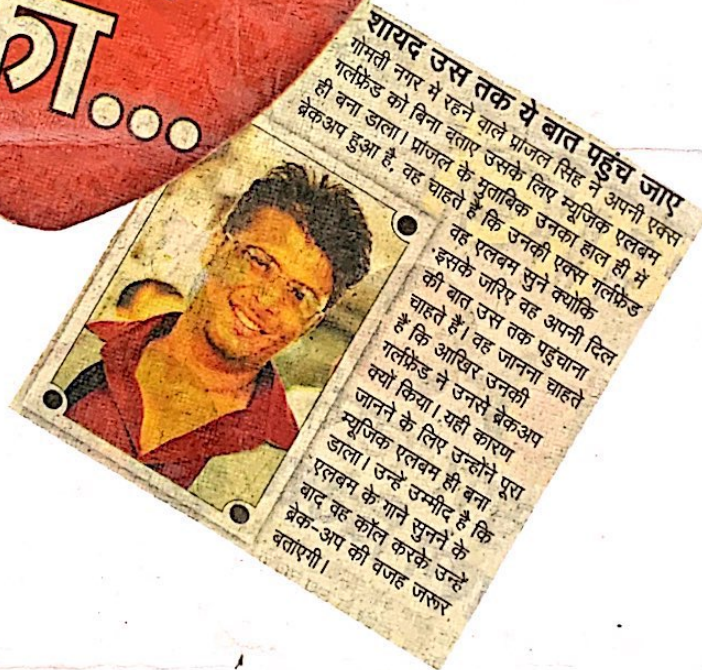 का...
शायद उस तक ये बात पहुंच जाए
गोमती नगर में रहने वाले प्रांजल सिंह ने अपनी एक्स
गर्लफ्रेंड को बिना बताए उसके लिए म्यूजिक एलबम
ही बना डाला। प्रांजल के मुताबिक उनका हाल ही में
ब्रेकअप हुआ है, वह चाहते हैं कि उनकी एक्स गर्लफ्रेंड
वह एलबम सुने क्योंकि
इसके जरिए वह अपनी दिल
की बात उस तक पहुंचाना
चाहते हैं। वह जानना चाहते
हैं कि आखिर उनकी
गर्लफ्रेंड ने उनसे ब्रेकअप
क्यों किया। यही कारण
जानने के लिए उन्होंने पूरा
म्यूजिक एलबम ही बना
डाला। उन्हें उम्मीद है कि
एलबम के गाने सुनने के
बाद वह कॉल करके उन्हें
ब्रेक-अप की वजह जरूर
बताएंगी।